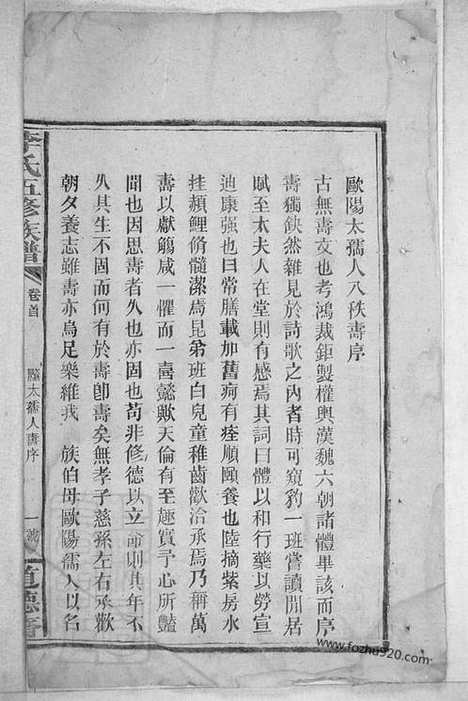 歐陽太孺人八秩壽序
古無壽文也考鴻裁鉅製權輿漢魏六朝諸體畢該而序
壽獨鈌然雜見於詩歌之內者時可窺豹一班嘗讀閒居
賦至太夫人在堂則有感焉其詞曰體以和行藥以勞宣
迪康强也曰常膳載加舊痾有痊順頤養也陸摘紫房水
挂頳鯉脩髓潔焉昆弟班白兒童稚齒歡洽承焉乃稱萬
壽以獻觴咸一懼而一喜懿歟天倫有至趣實予心所豔
聞也因思壽者久也亦固也苟非修德以立命則其年不
久其生不固而何有於壽卽壽矣無孝子慈孫左右承歡
朝夕養志雖壽亦烏足樂維我 族伯母歐陽孺人以名
李氏五修族譜
卷首
歐太孺人壽序
一
道德堂
www.fozhu920.com